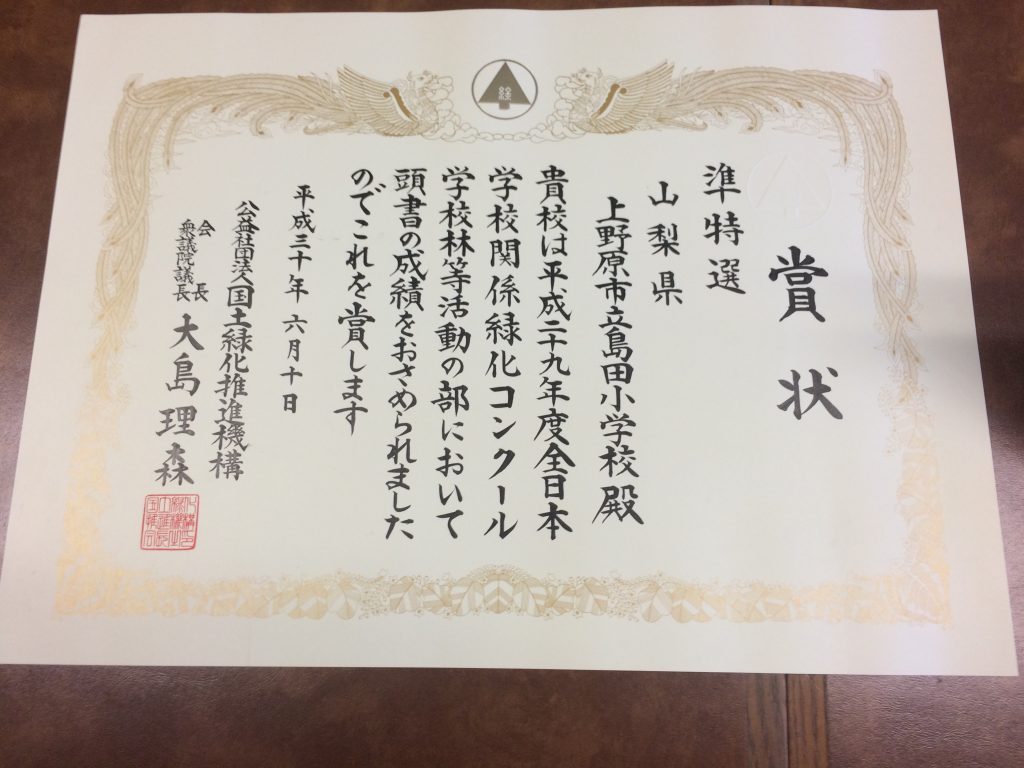 緑
賞状
準特選
山梨県
上野原市立島田小学校殿
貴校は平成二十九年度全日本
学校関係緑化コンクール
学校林等活動の部において
頭書の成績をおさめられました
のでこれを賞します
平成三十年六月十日
公益社団法人国土緑化推進機構
会長
衆議院議長
大島理森